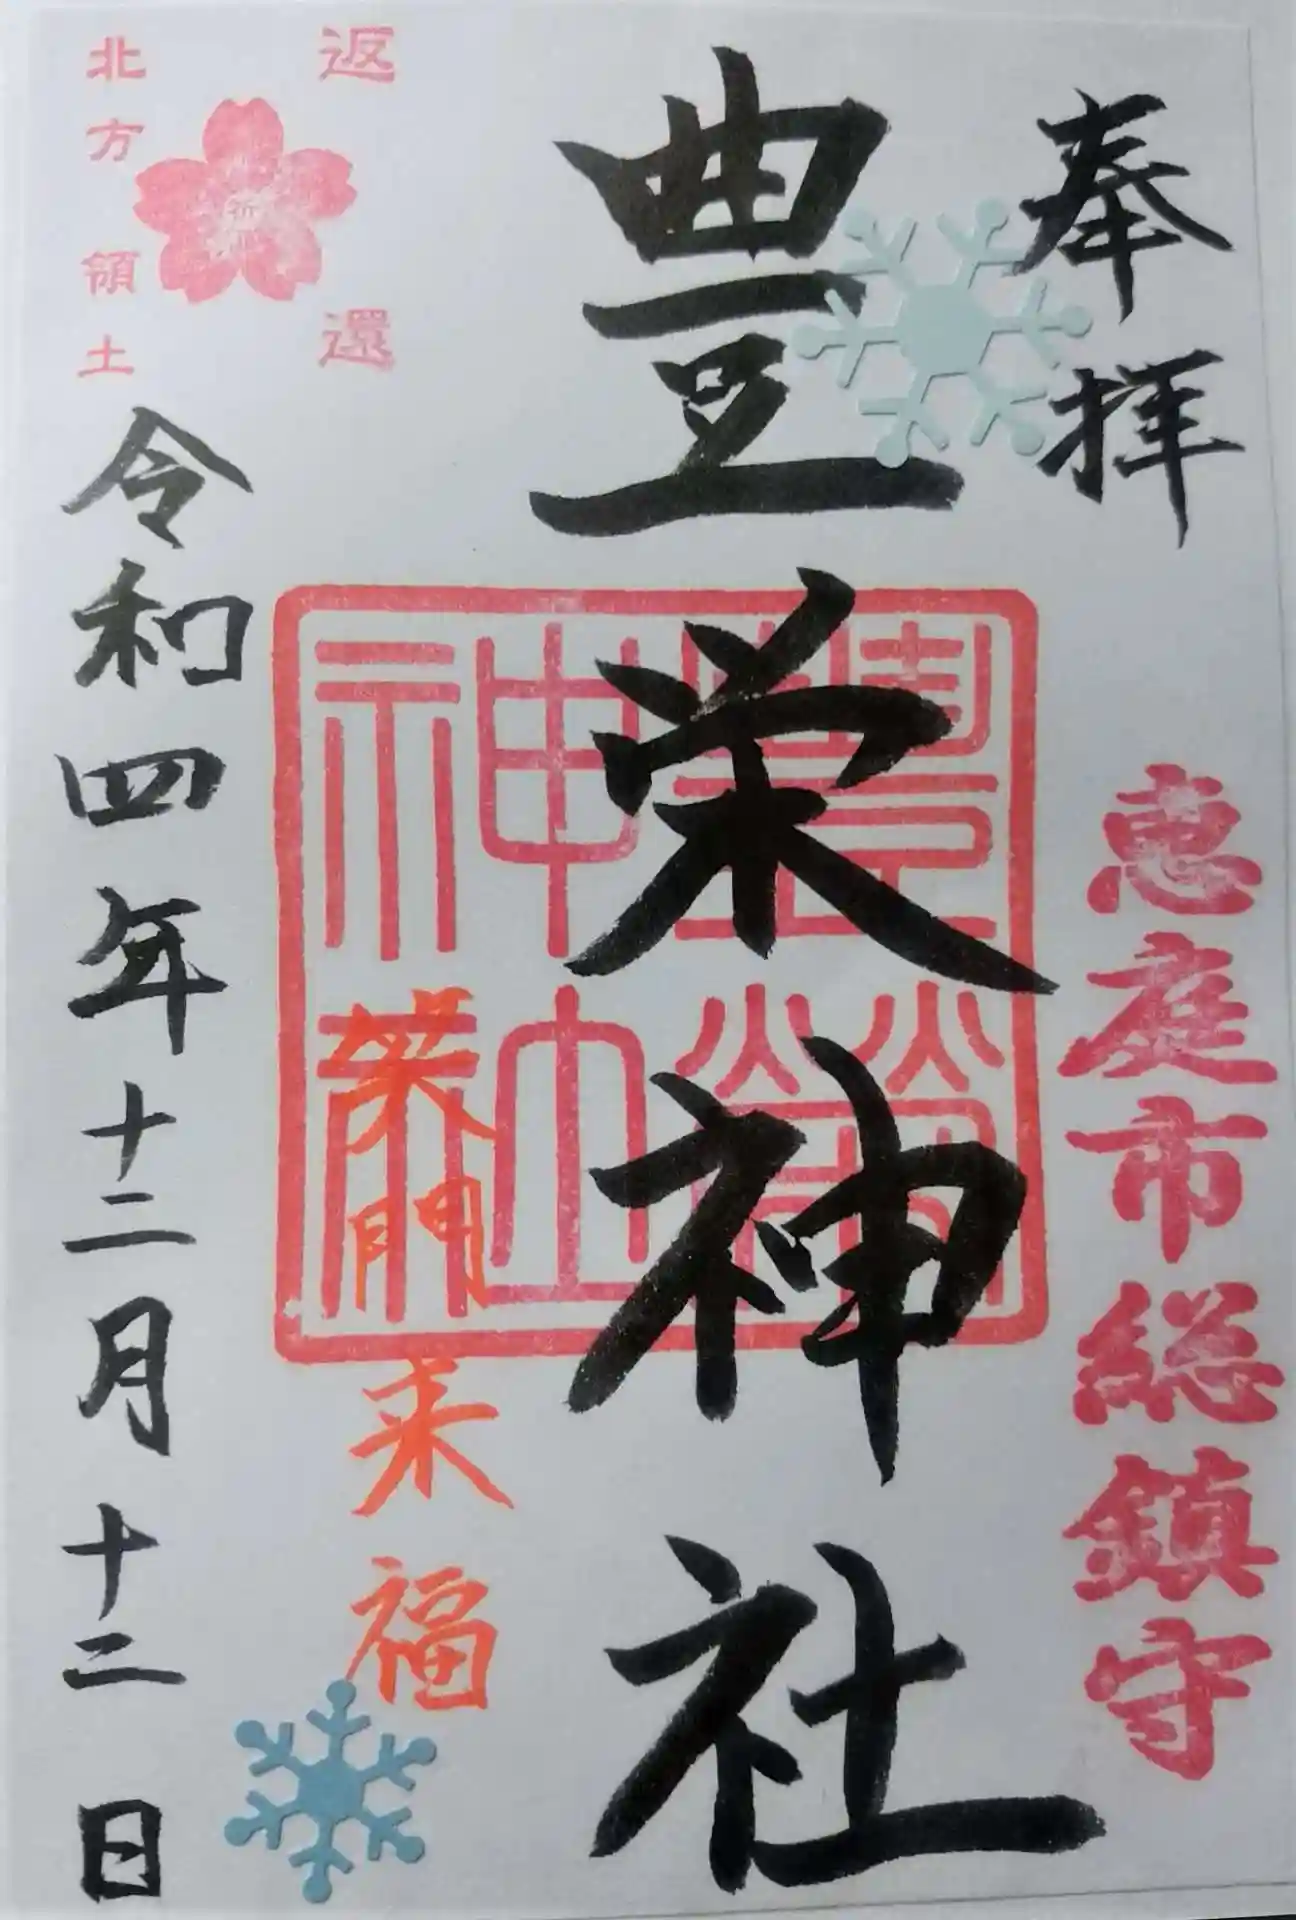 奉拝
恵庭市総鎮守
豊栄神社
豊栄神社
笑門来福
返還
北方領土
祈
令和四年十二月十二日